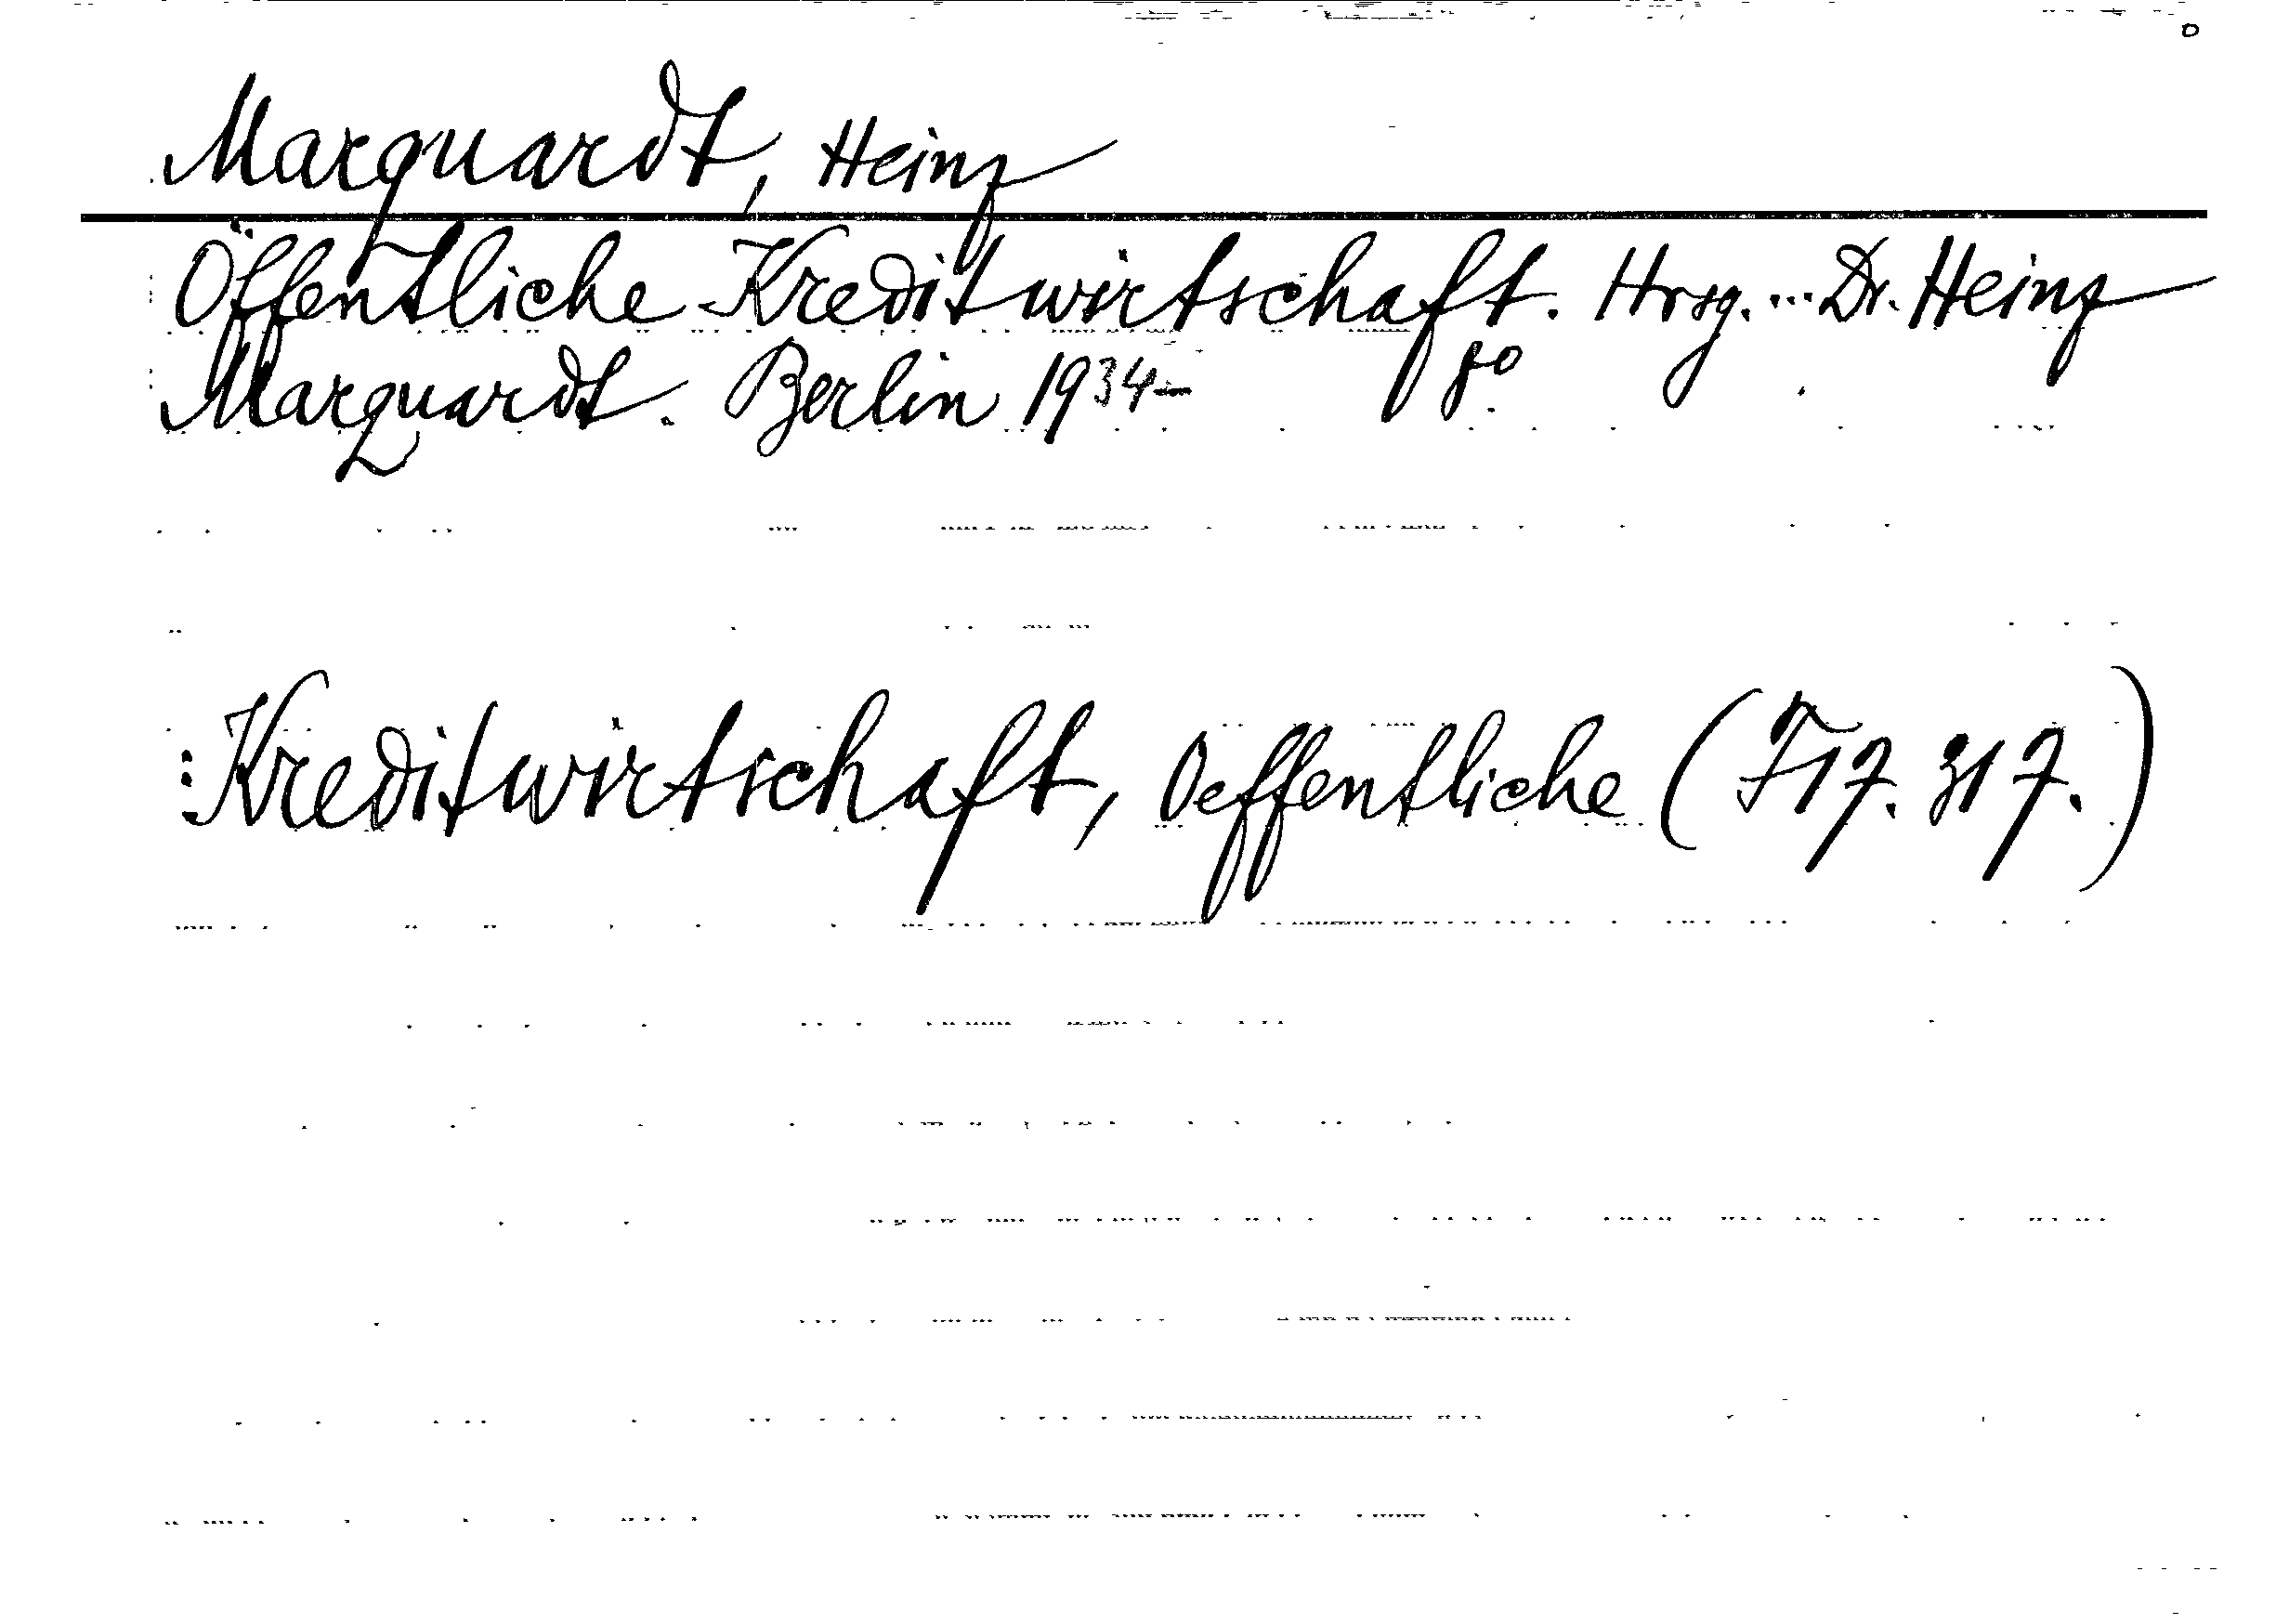 Marquardt, Heinz
Öffentliche Kreditwirtschaft. Hrsg. ... Dr. Heinz
Marquardt. Berlin 1934- 8°.
:Kreditwirtschaft, Oeffentliche (F17. 317.)